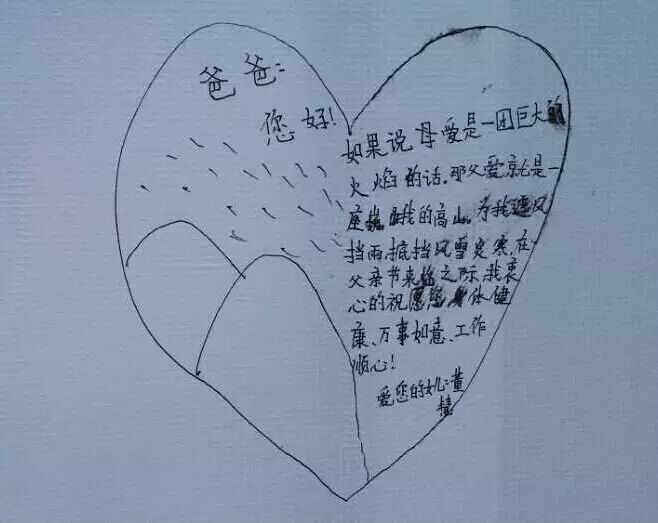 爸爸:
您好!
如果说母爱是一团巨大的
火焰的话,那父爱就是一
座巍峨的高山,为我遮风
挡雨,抵挡风雪炎寒,在
父亲节来临之际,我衷
心的祝愿您身体健
康、万事如意、工作
顺心!
爱您的女儿:董